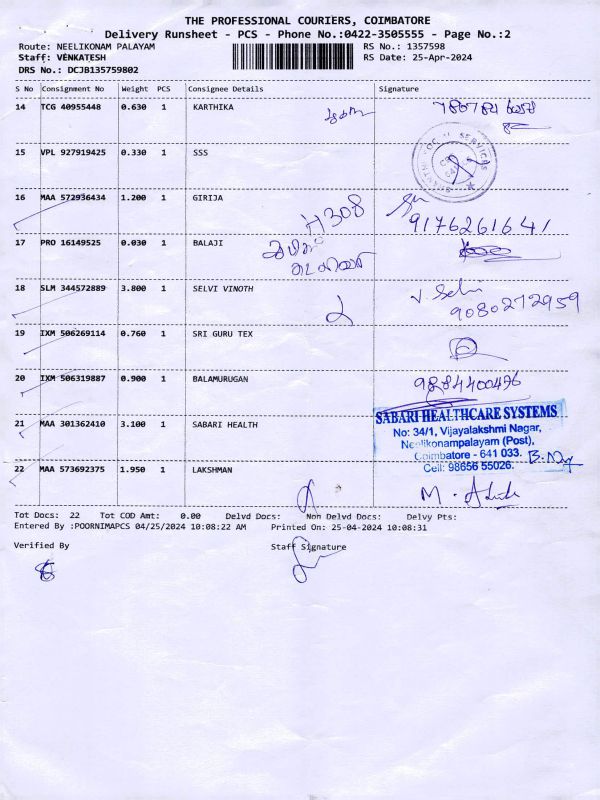 THE PROFESSIONAL COURIERS, COIMBATORE
Delivery Runsheet - PCS - Phone No.:0422-3505555 - Page No.:2
Route: NEELIKONAM PALAYAM RS No.: 1357598
Staff: VENKATESH RS Date: 25-Apr-2024
DRS No.: DCJB135759802
S No Consignment No Weight PCS Consignee Details Signature
14 TCG 40955448 0.630 1 KARTHIKA
15 VPL 927919425 0.330 1 SSS
16 MAA 572936434 1.200 1 GIRIJA
H308 9176261641
17 PRO 16149525 0.030 1 BALAJI
18 SLM 344572889 3.800 1 SELVI VINOTH
V. Selvi
9080272959
19 IXM 506269114 0.760 1 SRI GURU TEX
20 IXM 506319887 0.900 1 BALAMURUGAN
9884400496
21 MAA 301362410 3.100 1 SABARI HEALTH
SABARI HEALTHCARE SYSTEMS
No: 34/1, Vijayalakshmi Nagar,
Neelikonampalayam (Post),
Coimbatore - 641 033.
Cell: 98656 55026.
22 MAA 573692375 1.950 1 LAKSHMAN
Tot Docs: 22 Tot COD Amt: 0.00 Delvd Docs: Non Delvd Docs: Delvy Pts:
Entered By :POORNIMAPCS 04/25/2024 10:08:22 AM Printed On: 25-04-2024 10:08:31
Verified By Staff Signature